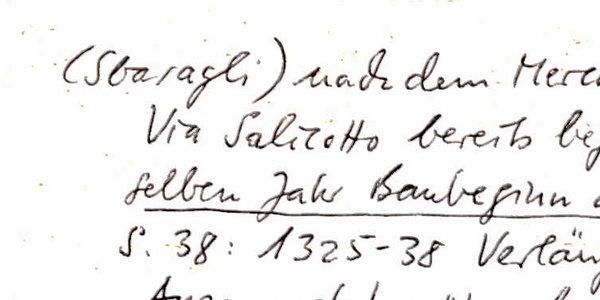 (Sbaragli) nach dem Merc
Via Salicotto bereits beg
selben Jahr Baubeginn
S. 38: 1325-38 Verlän